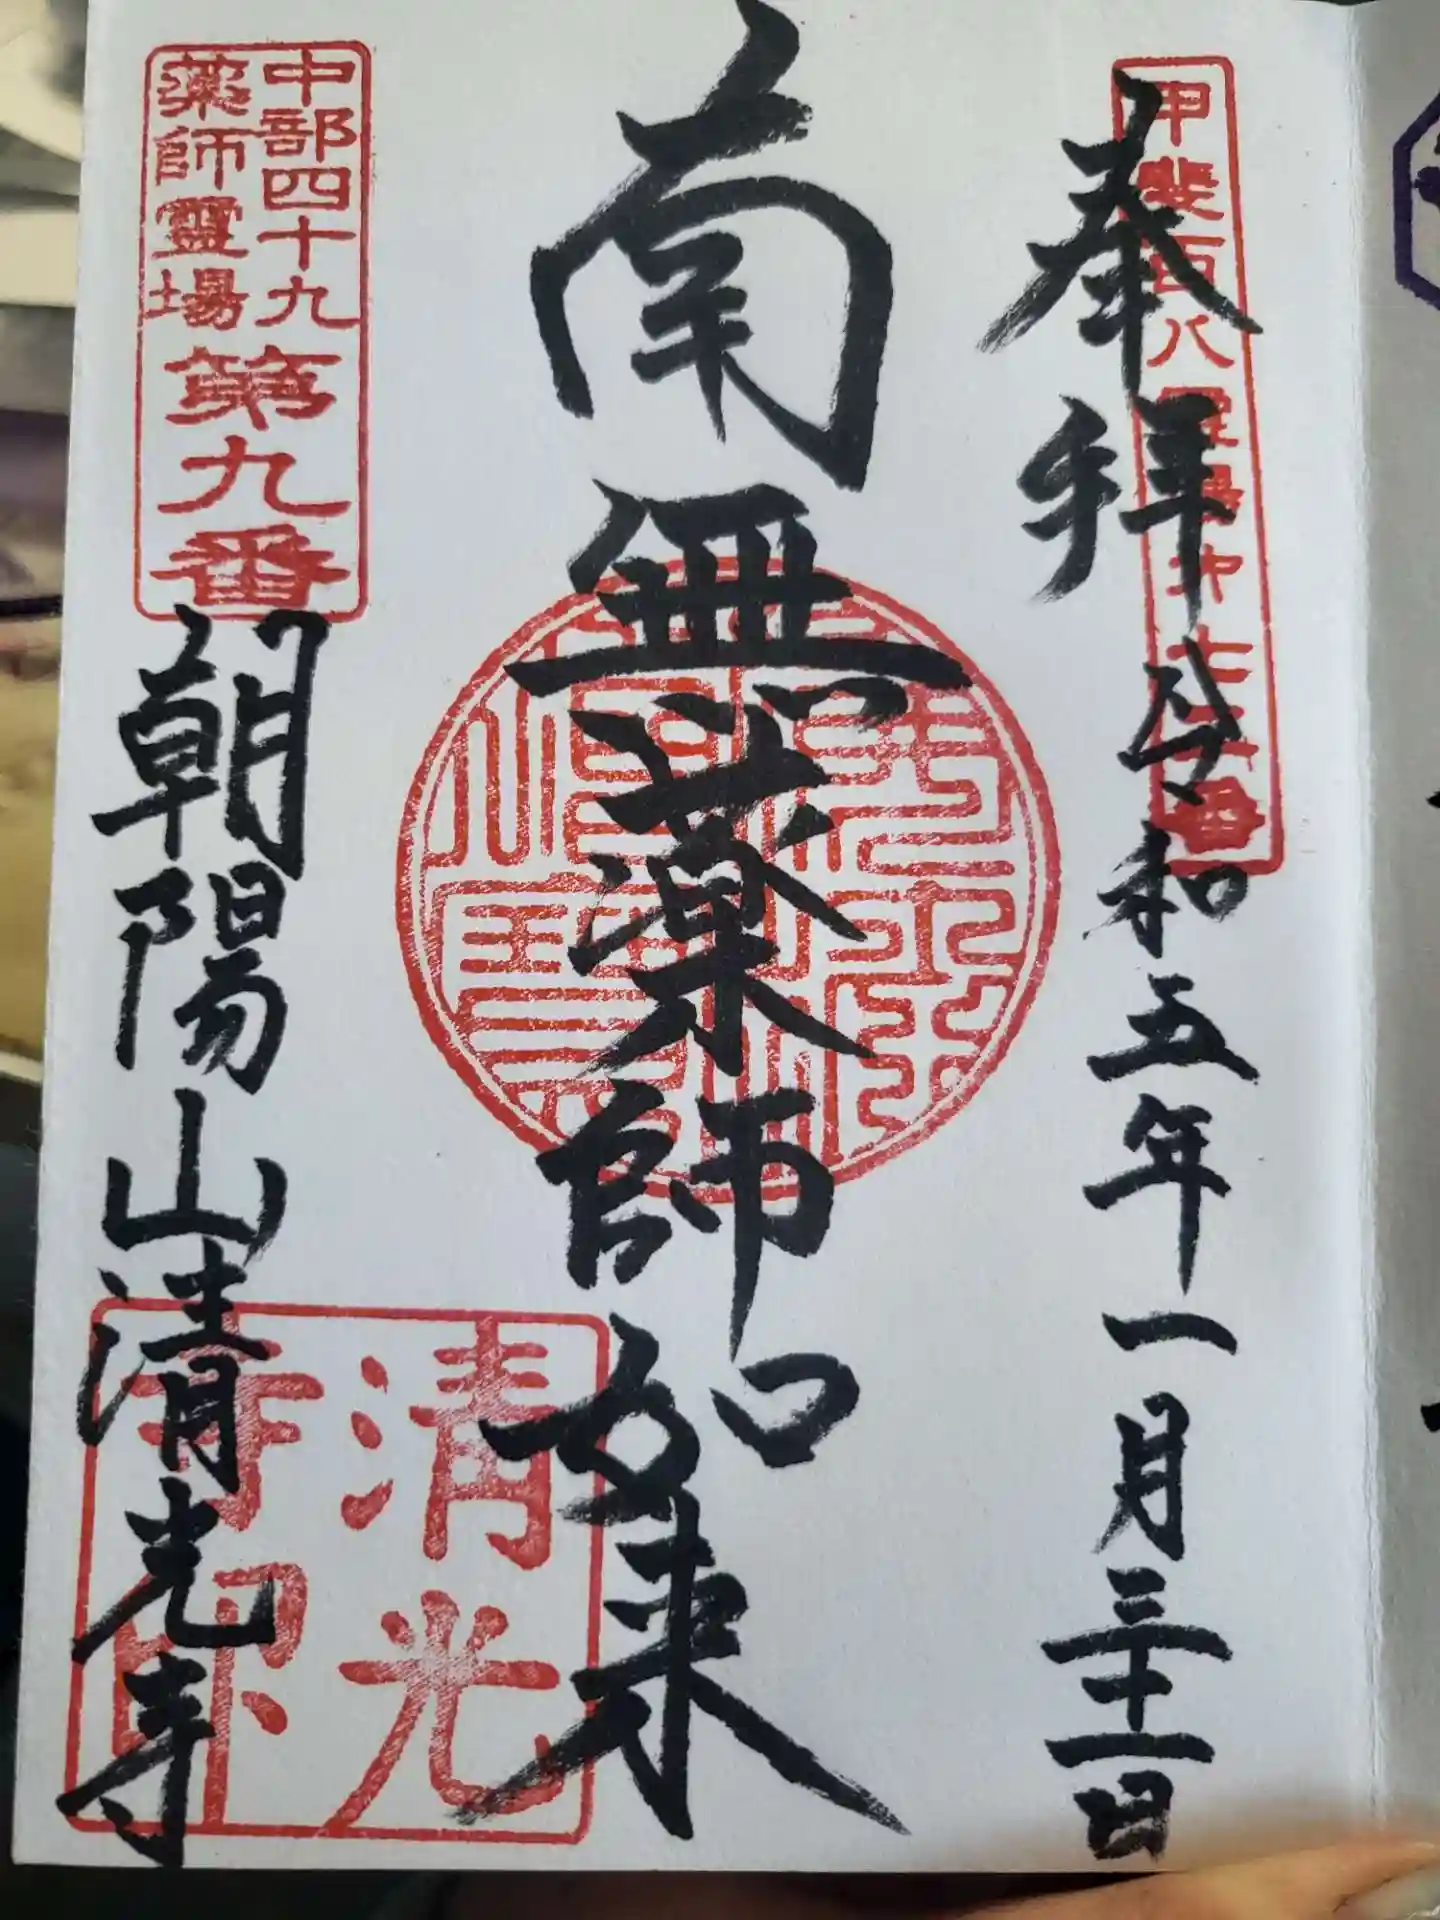 奉拝 令和五年一月三十一日
甲斐百八霊場第七十二番
南無薬師如来
中部四十九
薬師霊場
第九番
朝陽山清光寺
清光
寺印